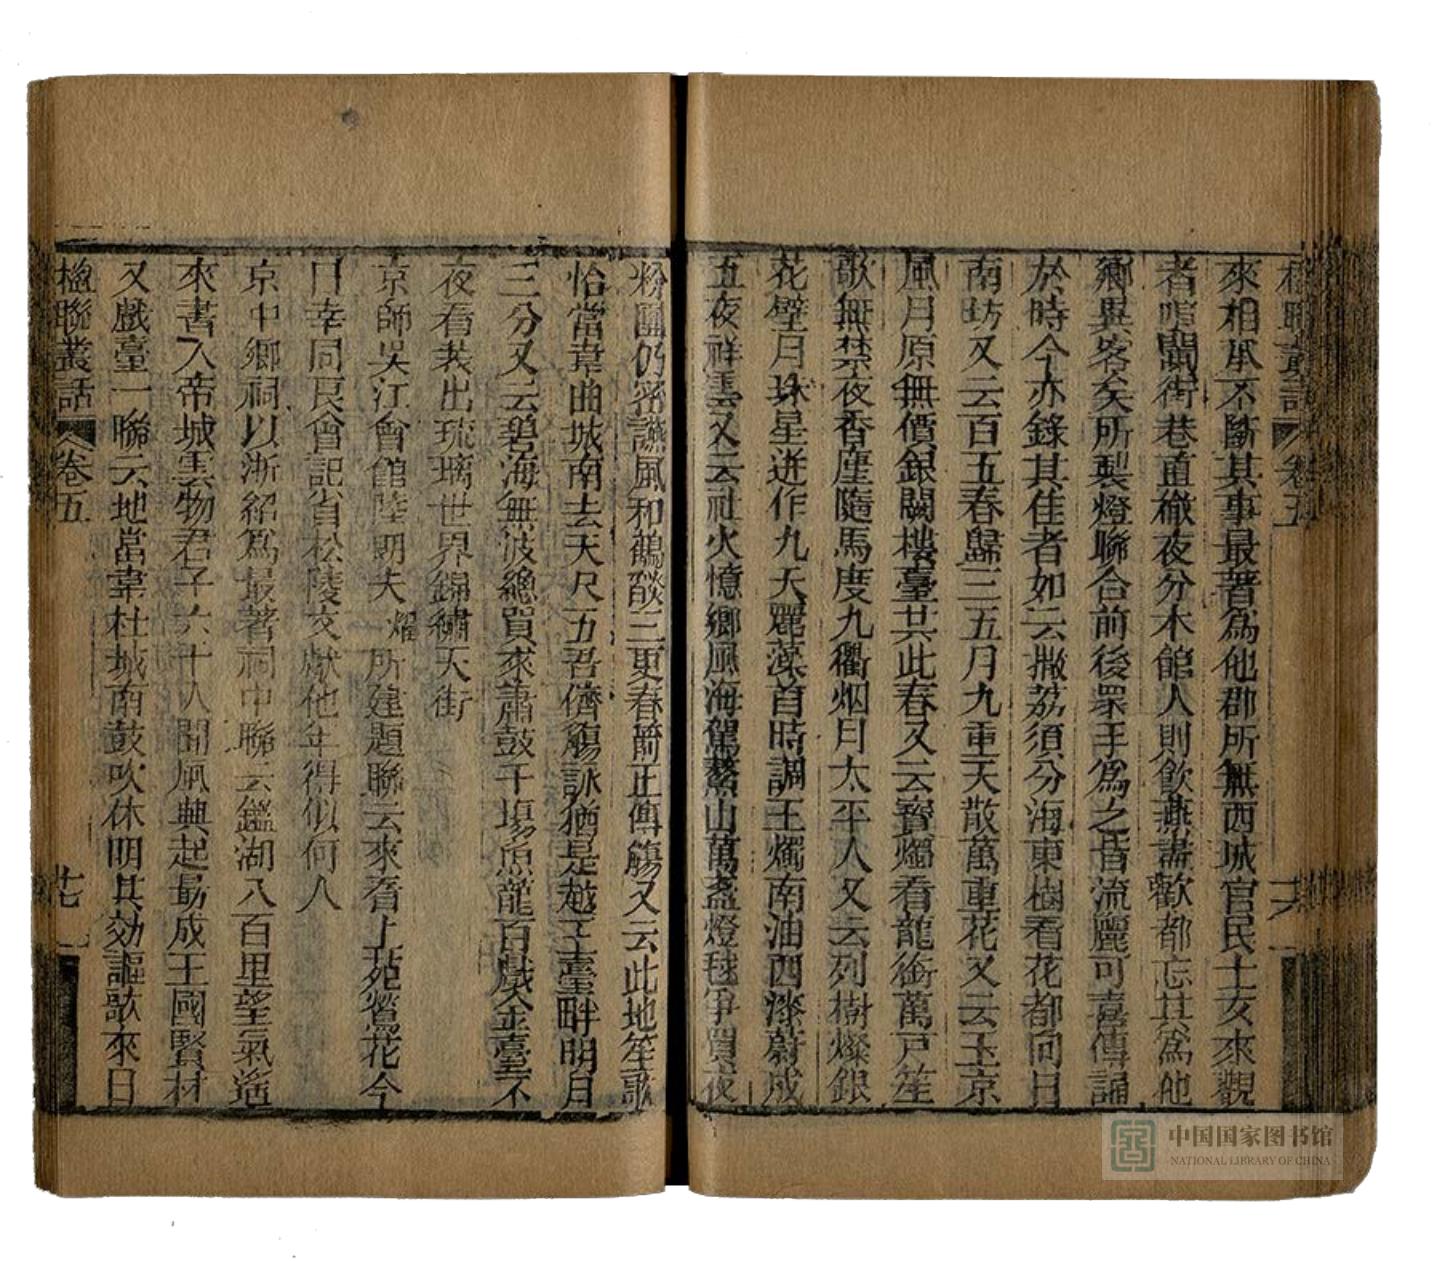 楹聯叢話 卷五 十六
來相屬不斷其事最著為他郡所無西城官民士女來觀
者喧闐街巷直徹夜分木館人則飲燕盡歡都忘其為他
鄉異客矣所製燈聯合前後眾手為之皆流麗可喜傳誦
於時今亦錄其佳者如云擻荔須分海東樹看花都向日
南坊又云百五春歸三五月九重天散萬重花又云玉京
風月原無價銀闕樓臺共此春又云寶燭看龍銜萬戶笙
歌無禁夜香塵隨馬度九衢烟月太平人又云列樹燦銀
花壁月珠星迸作九天麗藻首時調玉燭南油西漆蔚成
五夜祥雲又云社火憶鄉風海駕鰲山萬盞燈毬爭買夜
粉團仍密讌風和鶴燄三更春籥正傳觴又云此地笙歌
恰當韋曲城南去天尺五吾儕觴詠猶是越王臺畔明月
三分又云碧海無波總貝來肅鼓千場魚龍百戲金臺不
夜看裝出琉璃世界錦繡天街
京師吳江會館陸朗夫燿所建題聯云來看上苑鶯花今
日幸同民會記省松陵文獻他年得似何人
京中鄉祠以浙紹為最著祠中聯云鑑湖八百里望氣遙
來書入帝城雲物君子六千人聞風興起勗成王國賢材
又戲臺一聯云地當韋杜城南鼓吹休明其効謳歌來日
楹聯叢話 卷五 十七